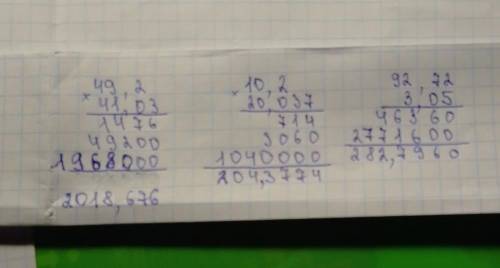 49,2
× 41,03
1476
49200
1968000
2018,676
10,2
× 20,037
714
3060
1040000
204,3774
92,72
3,05
46360
2771600
282,7960